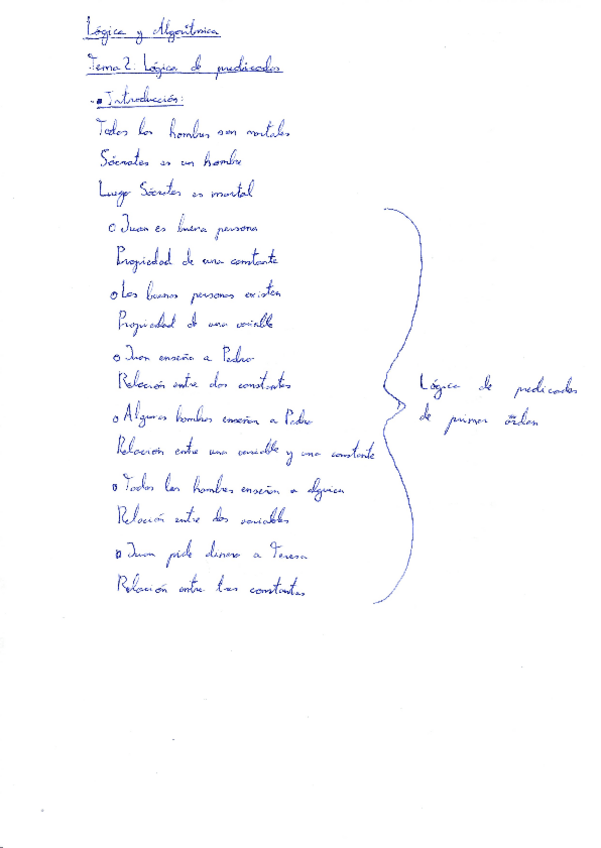 Lógica y Algorítmica
Tema 2: Lógica de predicados
Introducción:
Todos los hombres son mortales
Sócrates es un hombre
Luego Sócrates es mortal
Juan es buena persona
Propiedad de una constante
Las buenas personas existen
Propiedad de una variable
Juan enseña a Pedro
Relación entre dos constantes
Algunos hombres enseñan a Pedro
Relación entre una variable y una constante
Todos los hombres enseñan a alguien
Relación entre dos variables
Juan pide dinero a Teresa
Relación entre tres constantes
Lógica de predicados
de primer orden